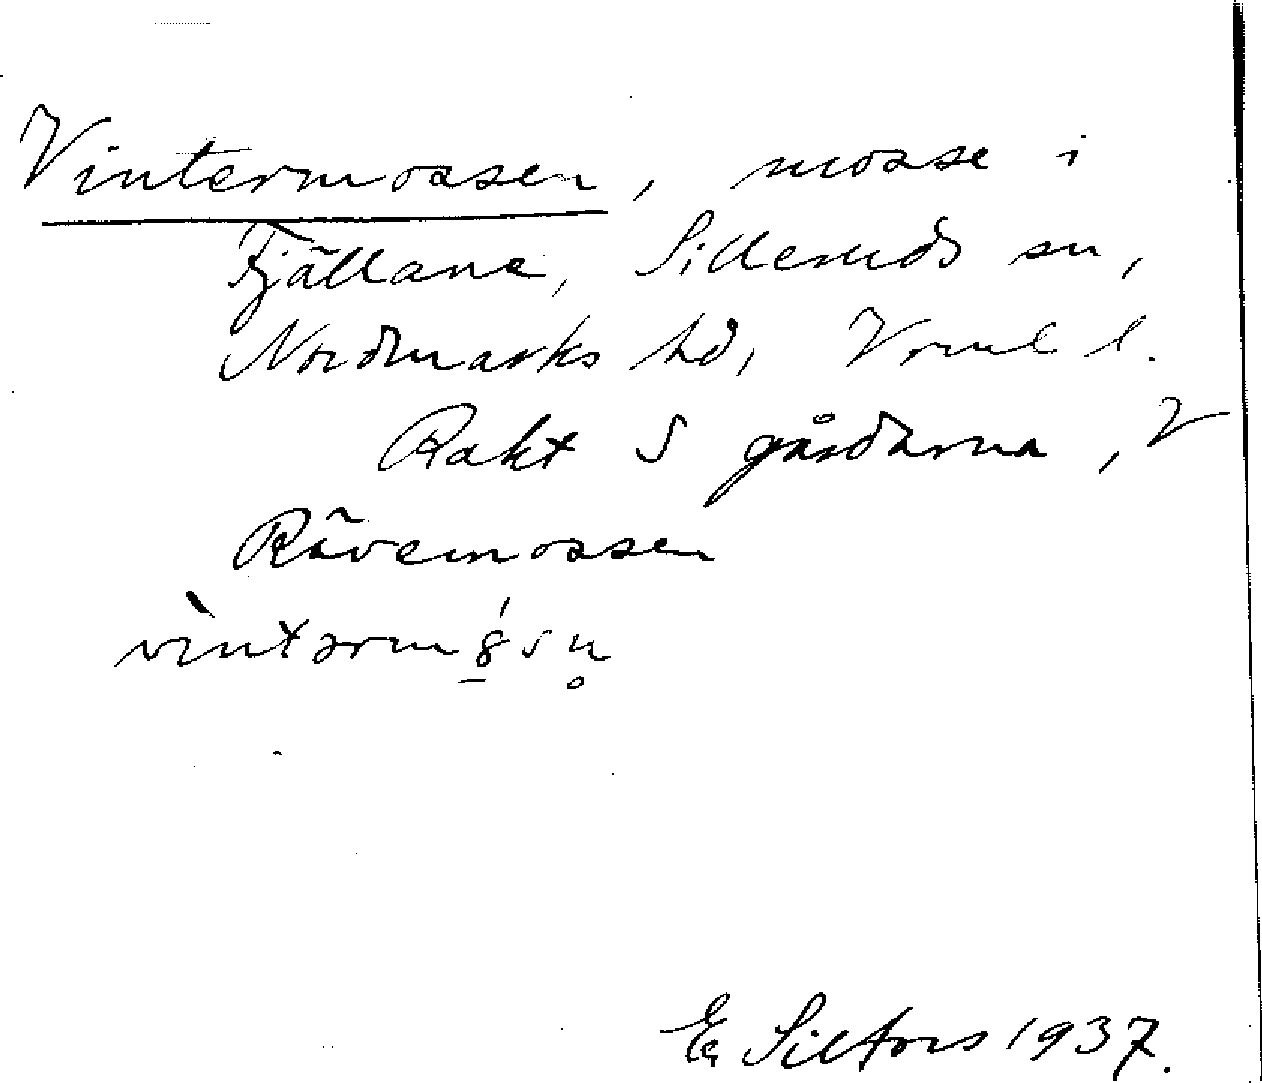 Vintermossen, mosse i
Fjällane, Silleruds sn,
Nordmarks hd, Vrml l.
Rakt S gårdarna, V
Rävemossen
E Silfors 1937.